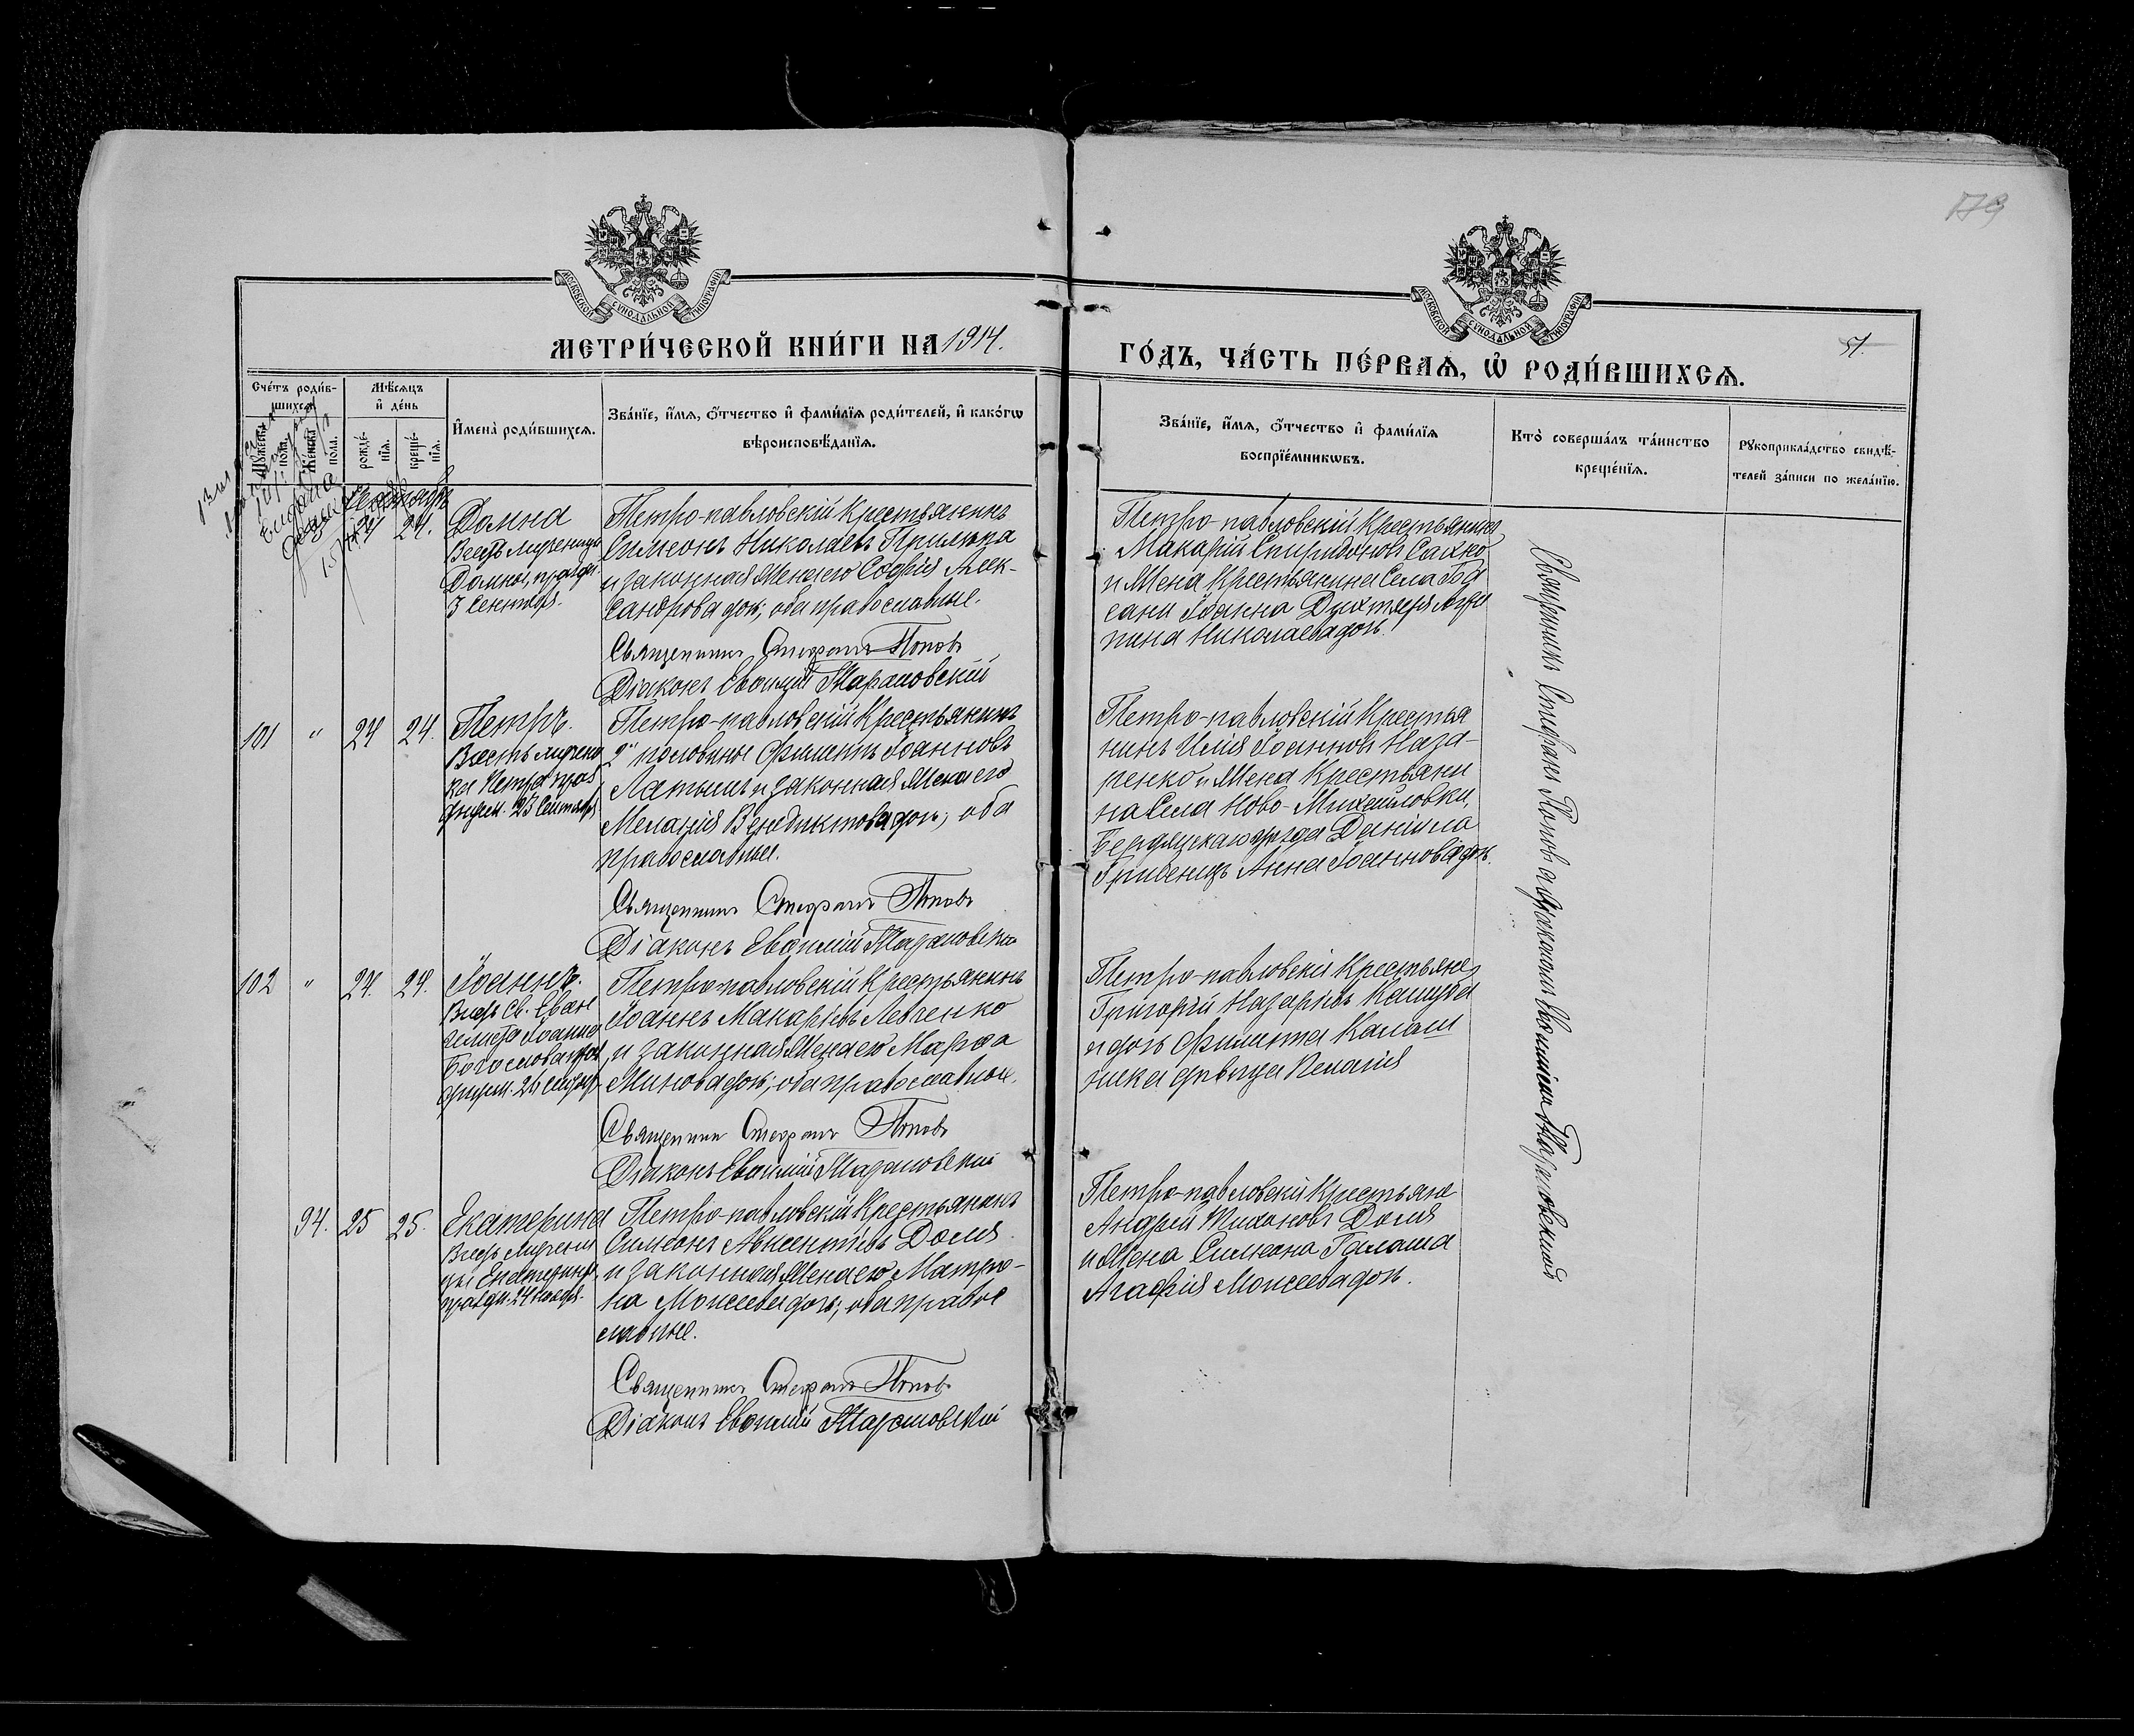 179
МОСКОВСКОЙ СѴНОДАЛЬНОЙ ТИПОГРАФІИ
МОСКОВСКОЙ СѴНОДАЛЬНОЙ ТИПОГРАФІИ
МЕТРИ́ЧЕСКОЙ КНИ́ГИ НА 1914.
ГО́ДЪ, ЧА́СТЬ ПЕ́РВАѦ, Ѡ҆ РОДИ́ВШИХСѦ.
51.
Сче́тъ роди́в-
шихсѧ
Мѣ́сѧцъ
и҆ де́нь
Мꙋ́жеска
по́ла.
Же́нска
по́ла.
рожде́-
нїѧ.
креще́-
нїѧ.
И҆мена̀ роди́вшихсѧ.
Зва́нїе, и҆́мѧ, ѻ҆́тчество и҆ фами́лїѧ роди́телей, и҆ како́гѡ
вѣроисповѣ́данїѧ.
Зва́нїе, и҆́мѧ, ѻ҆́тчество и҆ фами́лїѧ
воспрїе́мникѡвъ.
Кто̀ соверша́лъ та́инство
креще́нїѧ.
Рꙋкоприкла́дство свидѣ́-
телей за́писи по жела́нїю.
Сентябрь
24.
Домна
Въ честь мученицы
Домны, праздн.
3 Сентяб.
Петро-павловскій крестьянинъ
Симеонъ Николаевъ Прилипа
и законная жена его Софія Алек-
сандрова дочь; оба православные.
Священникъ Стефанъ Поповъ
Діаконъ Евѳимій Тарановскій
Петро-павловскій крестьянинъ
Макарій Спиридоновъ Сахно
и жена крестьянина села
Іоанна Дихтяря Агри
пина Николаева дочь.
101 " 24 24. Петръ.
Въ честь мучени
ка Петра праз
днуем. 23 Сентября
Петро-павловскій крестьянинъ
2й половины Филиппъ Іоанновъ
Латышъ и законная жена его
Меланія Венедиктова дочь; оба
православные.
Священникъ Стефанъ Поповъ
Діаконъ Евѳимій Тарановскій
Петро-павловскій крестья
нинъ Илія Іоанновъ Наза-
ренко и жена крестьяни
на села Ново-Михайловки,
Бердянскаго уѣзда Даніила
Анна Іоаннова дочь.
102 " 24. 24. Іоаннъ.
Въ честь Св. Еван
гелиста Іоанна
Богослова праз
днуем. 26 Сентяб.
Петро-павловскій крестьянинъ
Іоаннъ Макаріевъ Левченко
и законная жена его Марѳа
Минова дочь; оба православные.
Священникъ Стефанъ Поповъ
Діаконъ Евѳимій Тарановскій
Петро-павловскіе крестьяне
Григорій Назаріевъ Кашуба
и дочь Филиппа Калаш
ника дѣвица Пелагія
94. 25 25. Екатерина
Въ честь мучени
цы Екатерины,
праздн. 24 Ноября.
Петро-павловскій крестьянинъ
Симеонъ Авксентіевъ Доля
и законная жена его Матро-
на Моисеева дочь; оба правос
лавные.
Священникъ Стефанъ Поповъ
Діаконъ Евѳимій Тарановскій
Петро-павловскіе крестьяне
Андрей Тихоновъ Доля
и жена Симеона Галаша
Агафія Моисеева дочь.
Священникъ Стефанъ Поповъ съ діакономъ Евѳиміемъ Тарановскимъ